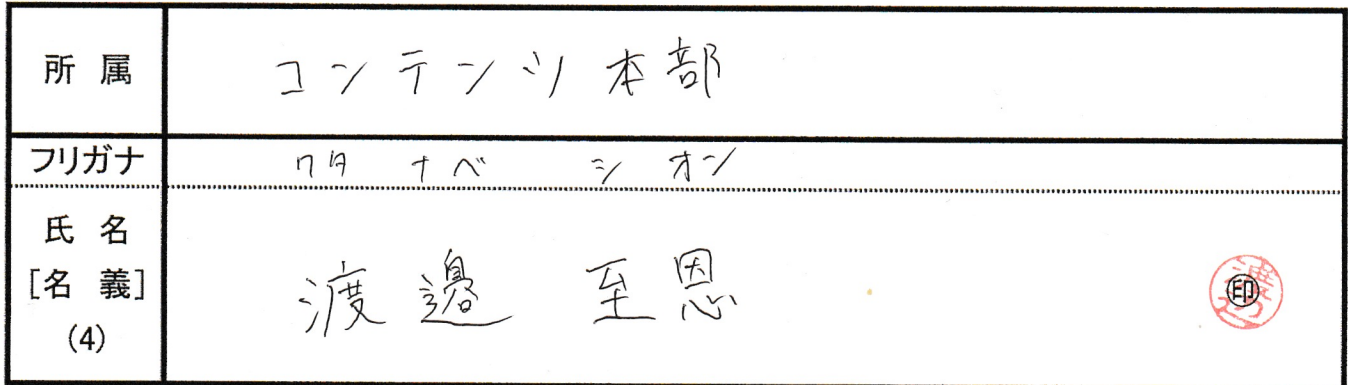 所属 コンテンツ本部
フリガナ ワタナベ シオン
氏名
[名義]
(4)
渡邉 至恩
印